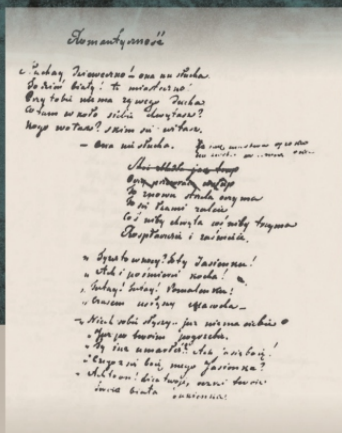 Romantyczność
Słuchay Dzieweczko! – ona nie słucha.
To dzień biały! to miasteczko!
Przy tobie niema żywego ducha
Co tam w koło siebie chwytasz?
Kogo wołasz? z kim się witasz.
– Ona nie słucha.
To znowu strzela oczyma
To się łzami zaleie
Coś niby chwyta coś niby trzyma
Rozpłacze się i zaśmieie.
„ Tyżeś to w nocy? to ty Jasieńku!
„ Ach i po śmierci kocha!
„ Tutay! tutay! pomaleńku!
„ Czasem usłyszy macocha –
– Niech sobie słyszy – już niema ciebie
„ Już po twoim pogrzebie.
„ Ty już umarłeś? Ach ia się boię!
„ Czego się boię mego Jasieńka?
„ Ach to on! lica twoie, oczki twoie
twoia biała sukienka!